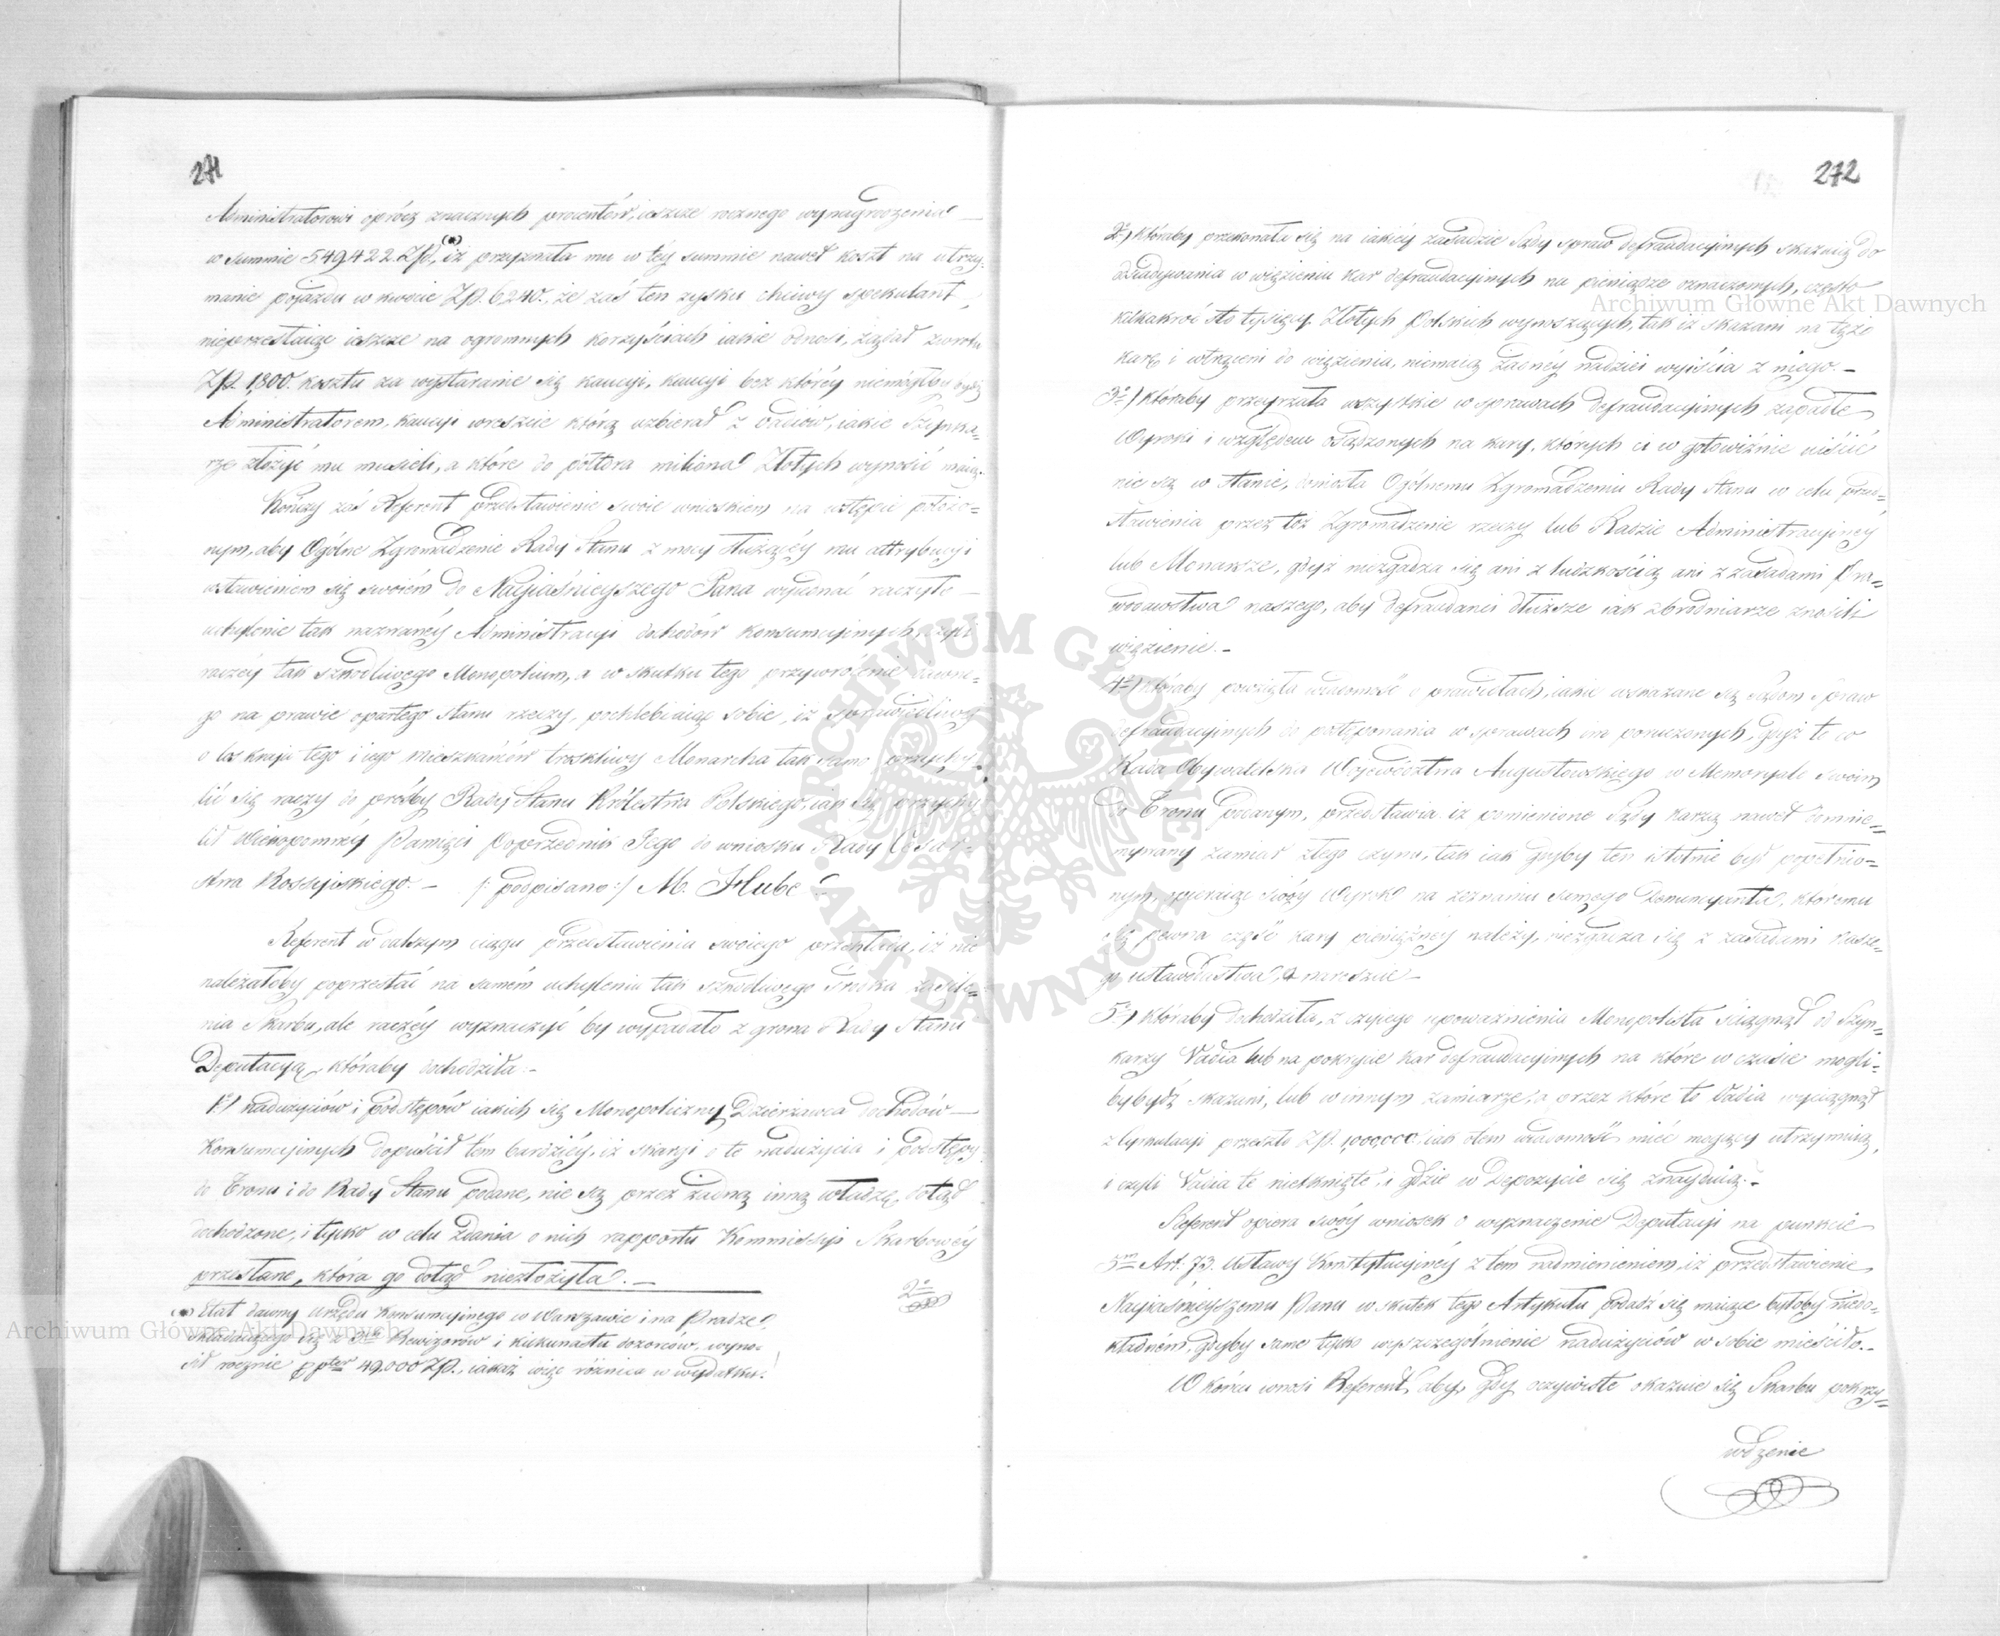 271
Administratorowi oprócz znacznych procentów, ieszcze rocznego wynagrodzenia
w summie 549422 Złp, (*) iż przyznała mu w téy summie nawet koszt na utrzy-
manie pojazdu w kwocie Zp. 6240., że zaś ten zysku chciwy spekulant,
nieprzestaiąc ieszcze na ogromnych korzyściach iakie odnosi, żądał zwrotu
Zp. 1,800. kosztu za wystaranie się kaucyi, kaucyi bez któréy niemógłby bydź
Administratorem, kaucyi wreszcie którą uzbierał z Vadiów, iakie Szynka-
rze złożyć mu musieli, a które do półtora miliona Złotych wynosić maią.
Kończy zaś Referent przedstawienie swoie wnioskiem na wstępie położo-
nym, aby Ogólne Zgromadzenie Rady Stanu z mocy służącéy mu attrybucyi
wstawieniem się swoiem do Nayiaśnieyszego Pana wyjednać raczyło
uchylenie tak nazwanéy Administracyi dochodów konsumcyinych, czyli
raczéy tak szkodliwego Monopolium, a w skutku tego przywrócenie dawne-
go na prawie opartego stanu rzeczy, pochlebiaiąc sobie, iż sprawiedliwy
o los kraju tego i iego mieszkańców troskliwy Monarcha tak samo przychy-
lić się raczy do prośby Rady Stanu Królestwa Polskiego, iak się przychy-
lił Wiekopomnéy Pamięci Poprzednik Jego do wniosku Rady Cesar-
stwa Rossyiskiego. – /: podpisano :/ M. Hube
Referent w dalszym ciągu przedstawienia swoiego przekłada, iż nie
należałoby poprzestać na samém uchyleniu tak szkodliwego środka zasile-
nia Skarbu, ale raczéy wyznaczyć by wypadało z grona Rady Stanu
Deputacyą, któraby dochodziła. –
1o/ nadużyciów i podstępów iakich się Monopoliczny Dzierżawca dochodów
Konsumcyinych dopuścił tém bardziéy, iż skargi o te nadużycia i podstępy
do Tronu i do Rady Stanu podane, nie są przez żadną inną władzę, dotąd
dochodzone, i tylko w celu zdania o nich rapportu Kommissyi Skarbowéy
przesłane, która go dotąd niezłożyła. –
2o
(*) Etat dawny Urzędu Konsumcyinego w Warszawie i na Pradze
składaiącego się z 3ch Rewizorów i kilkunastu dozorców, wyno-
sił rocznie ppter 49,000 Zp., iakaż więc różnica w wydatku.
272
2o/ któraby przekonała się na iakiéy zasadzie Sądy spraw defraudacyinych skazuią do
odsiadywania w więzieniu kar defraudacyinych na pieniądze oznaczonych, często
kilkakroć sto tysięcy Złotych Polskich wynoszących, tak iż skazani na tęże
karę i wtrąceni do więzienia, niemaią żadnéy nadziei wyiścia z niego. –
3o/ któraby przeyrzała wszystkie w sprawach defraudacyinych zapadłe
Wyroki i względem osądzonych na kary, których ci w gotowiźnie uiścić
nie są w stanie, doniosła Ogólnemu Zgromadzeniu Rady Stanu w celu przed-
stawienia przez toż Zgromadzenie rzeczy lub Radzie Administracyinéy
lub Monarsze, gdyż niezgadza się ani z ludzkością ani z zasadami Pra-
wodawstwa naszego, aby defraudanci dłuższe iak zbrodniarze znosili
więzienie. –
4o/ któraby powzięła wiadomość o prawidłach, iakie wskazane są Sądom Spraw
defraudacyinych do postępowania w sprawach im poruczonych, gdyż to co
Rada Obywatelska Województwa Augustowskiego w Memoryale swoim
do Tronu podanym, przedstawia iż pomienione Sądy karzą nawet domnie-
mywany zamiar złego czynu, tak iak gdyby ten istotnie był popełnio-
nym, opieraiąc swóy Wyrok na zeznaniu samego Denuncyanta, któremu
się pewna część kary pieniężnéy należy, niezgadza się z zasadami nasze-
go ustawodawstwa, a nareszcie –
5o/ któraby dochodziła, z czyiego upoważnienia Monopolista ściągnął od Szyn-
karzy Vadia lub na pokrycie kar defraudacyinych na które w czasie mogli-
by bydź skazani, lub w innym zamiarze, a przez które to Vadia wyciągnął
z Cyrkulacyi przeszło Zp. 1,000,000, iak o tem wiadomość mieć mogący utrzymuią,
i czyli Vadia te nietknięte, i gdzie w Depozycie się znayduią. –
Referent opiera swóy wniosek o wyznaczenie Deputacyi na punkcie
5m Art. 73. Ustawy Konstytucyinéy z tém nadmienieniem, iż przedstawienie
Nayiaśnieyszemu Panu w skutek tego Artykułu podadź się maiące byłoby niedo-
kładném, gdyby same tylko wyszczególnienie nadużyciów w sobie mieściło. –
W końcu wnosi Referent, aby, gdy oczywiste okazuie się Skarbu pokrzy-
wdzenie
Archiwum Główne Akt Dawnych
Archiwum Główne Akt Dawnych
ARCHIWUM GŁÓWNE AKT DAWNYCH